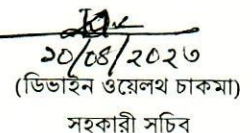 ২০/০৪/২০২৩
(ডিভাইন ওয়েলথ চাকমা)
সহকারী সচিব